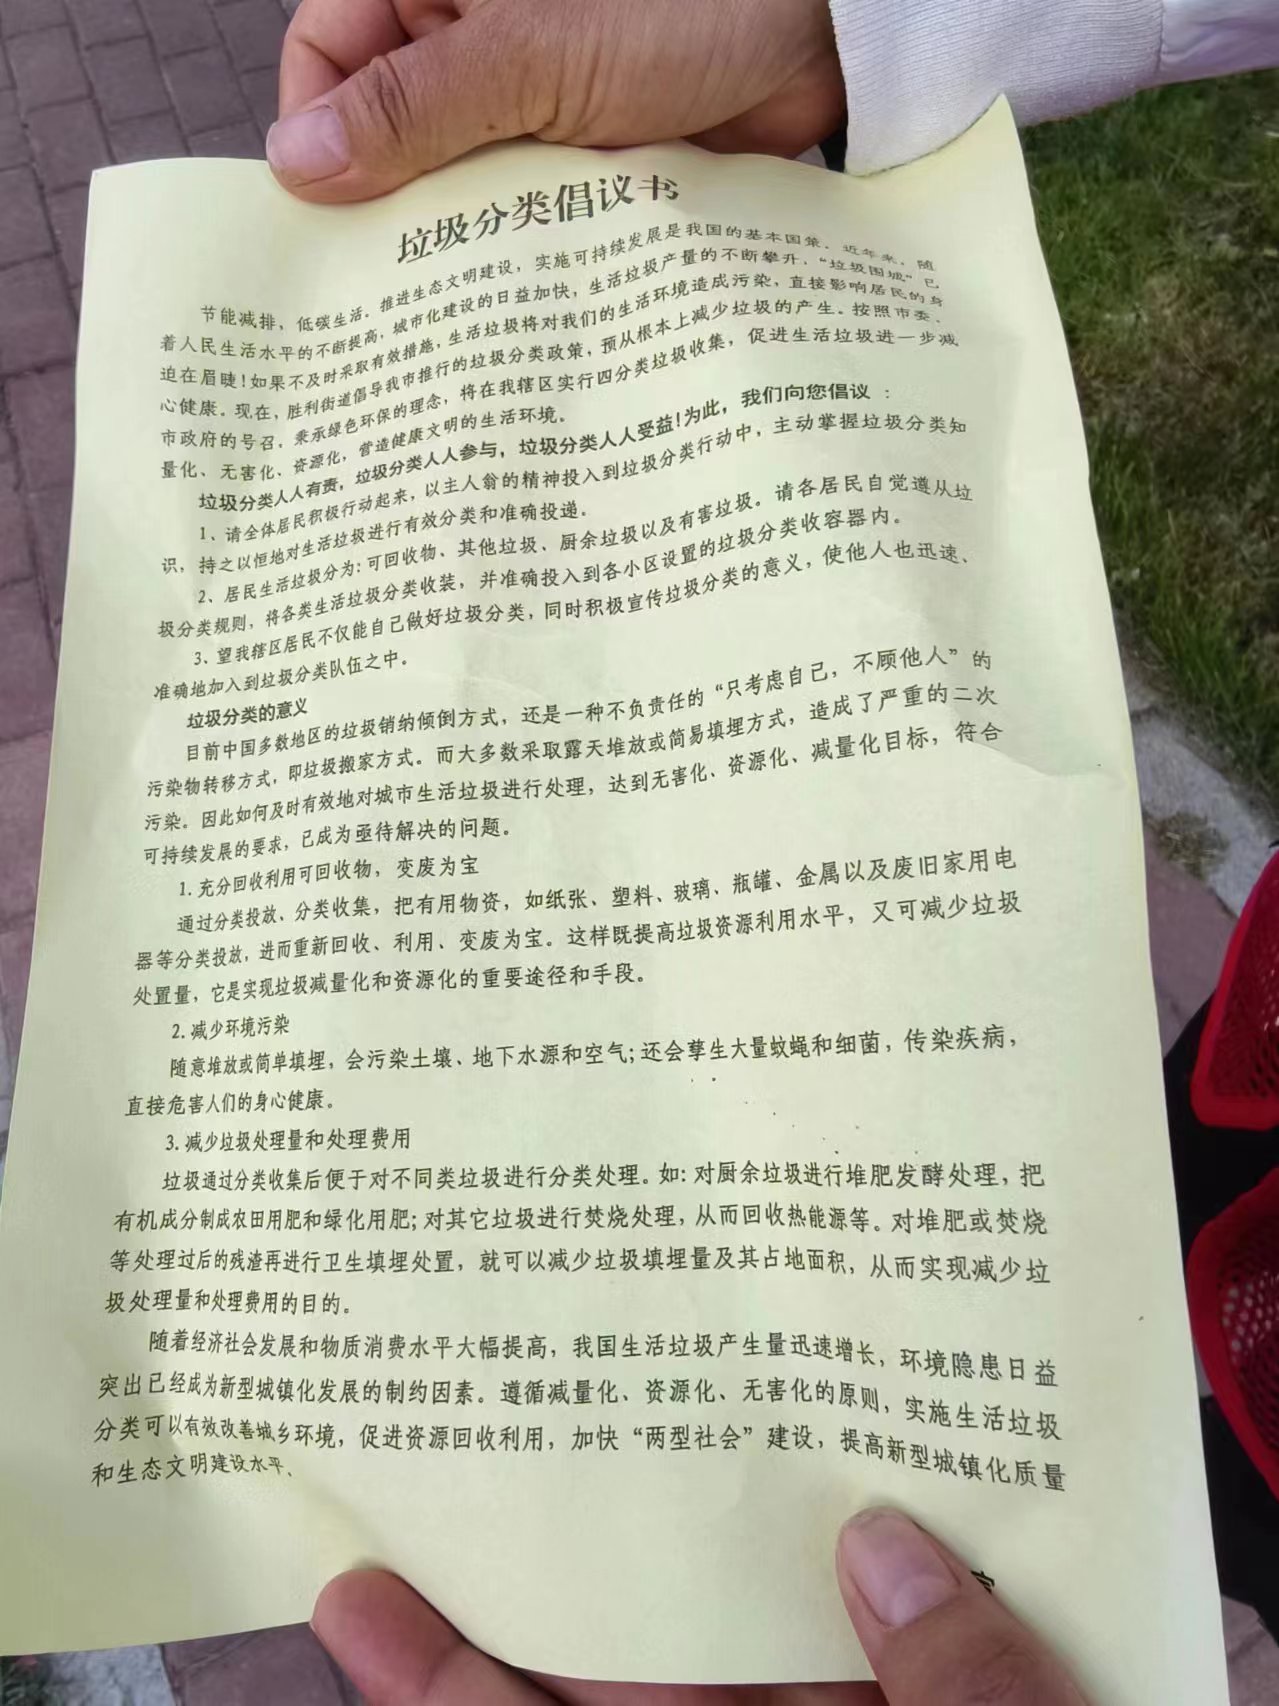 垃圾分类倡议书
节能减排，低碳生活。推进生态文明建设，实施可持续发展是我国的基本国策。近年来，随
着人民生活水平的不断提高，城市化建设的日益加快，生活垃圾产量的不断攀升，“垃圾围城”已
迫在眉睫！如果不及时采取有效措施，生活垃圾将对我们的生活环境造成污染，直接影响居民的身
心健康。现在，胜利街道倡导我市推行的垃圾分类政策，预从根本上减少垃圾的产生。按照市委、
市政府的号召，秉承绿色环保的理念，将在我辖区实行四分类垃圾收集，促进生活垃圾进一步减
量化、无害化、资源化，营造健康文明的生活环境。
垃圾分类人人有责，垃圾分类人人参与，垃圾分类人人受益！为此，我们向您倡议：
1、请全体居民积极行动起来，以主人翁的精神投入到垃圾分类行动中，主动掌握垃圾分类知
识，持之以恒地对生活垃圾进行有效分类和准确投递。
2、居民生活垃圾分为：可回收物、其他垃圾、厨余垃圾以及有害垃圾。请各居民自觉遵从垃
圾分类规则，将各类生活垃圾分类收装，并准确投入到各小区设置的垃圾分类收容器内。
3、望我辖区居民不仅能自己做好垃圾分类，同时积极宣传垃圾分类的意义，使他人也迅速、
准确地加入到垃圾分类队伍之中。
垃圾分类的意义
目前中国多数地区的垃圾销纳倾倒方式，还是一种不负责任的“只考虑自己，不顾他人”的
污染物转移方式，即垃圾搬家方式。而大多数采取露天堆放或简易填埋方式，造成了严重的二次
污染。因此如何及时有效地对城市生活垃圾进行处理，达到无害化、资源化、减量化目标，符合
可持续发展的要求，已成为亟待解决的问题。
1.充分回收利用可回收物，变废为宝
通过分类投放、分类收集，把有用物资，如纸张、塑料、玻璃、瓶罐、金属以及废旧家用电
器等分类投放，进而重新回收、利用、变废为宝。这样既提高垃圾资源利用水平，又可减少垃圾
处置量，它是实现垃圾减量化和资源化的重要途径和手段。
2.减少环境污染
随意堆放或简单填埋，会污染土壤、地下水源和空气；还会孳生大量蚊蝇和细菌，传染疾病，
直接危害人们的身心健康。
3.减少垃圾处理量和处理费用
垃圾通过分类收集后便于对不同类垃圾进行分类处理。如：对厨余垃圾进行堆肥发酵处理，把
有机成分制成农田用肥和绿化用肥；对其它垃圾进行焚烧处理，从而回收热能源等。对堆肥或焚烧
等处理过后的残渣再进行卫生填埋处置，就可以减少垃圾填埋量及其占地面积，从而实现减少垃
圾处理量和处理费用的目的。
随着经济社会发展和物质消费水平大幅提高，我国生活垃圾产生量迅速增长，环境隐患日益
突出已经成为新型城镇化发展的制约因素。遵循减量化、资源化、无害化的原则，实施生活垃圾
分类可以有效改善城乡环境，促进资源回收利用，加快“两型社会”建设，提高新型城镇化质量
和生态文明建设水平。